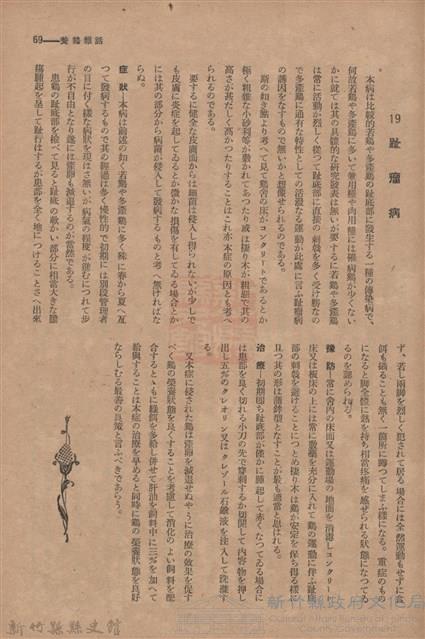 69——養鷄雜話
19 趾瘤病
本病は比較的若鷄や多產鷄の趾底部に發生する一種の傳染病で、
何故若鷄や多產鷄に多いて兼用種や肉用種には罹病鷄が少くない
かに就ては其の具體的な研究發表は無いが要するに若鷄や多產鷄
は常に活動が烈しく從つて趾底部に直接の刺戟を多く受け勝なの
で多產鷄に通有な特性としての活潑なる運動が此處に言ふ趾瘤病
の誘因をなすもので無いかと想像せられるのである。
斯の如き點より考へて見て鷄舍の床がコンクリートであるとか
極く粗雜な小砂利等が敷かれてあつたり或は棲り木が粗雜で其の
高さが甚だしく高かつたりすることはこれ亦本症の原因とも考へ
られるのである。
要するに健全な皮膚面からは細菌は侵入し得られないが少しで
も皮膚に炎症を起してゐるとか微かな損傷を有してゐる場合とか
には其の部分から病菌が侵入して發病するものと考へ無ければな
らぬ。
症狀—本病は前述の如く若鷄や多產鷄に多く殊に春から夏へ亙
つて發病するもので其の經過は多く慢性的で初期には別段管理者
の目に付く樣な病狀を現はさ無いが病氣の程度が進むにつれて步
行が不自由となり遂には產卵も減退するのが當然である。
患鷄の趾底部を檢べて見ると趾底の軟かい部分に相當大きな腫
瘍腫起を呈して趾行はするが患部を全く地につけることさへ出來
ず、若し兩脚を烈しく犯されて居る場合には全然運動もせずに食
餌も碌ることも無く一箇所に蹲つてしまふ樣になる。重症のもの
になると脚全體に熱を持ち相當疼痛を感ぜられる狀態になつてゐ
るのを認められる。
豫防—常に舍內の床面又は運動場の地面を消毒しコンクリート
床又は板床の上には常に敷藁を充分に入れて鷄の運動に伴ふ趾底
部の刺戟を避けることにつとめ棲り木は鷄が安定を保ち得る樣に
且つ其の形は蒲鉾型となすことが最も適當と思はれる。
治療—初期卽ち趾底部が僅かに腫起して赤くなつてゐる場合に
は患部を良く切れる小刀の先で穿刺するか切開して內容物を押し
出し五%のクレオリン又はクレゾール石鹼液を注入して洗滌す
る。
又本症に侵された鷄は產卵を減退せぬやうに治療の效果を促す
べく鷄の榮養狀態を良くすることを考慮して消化のよい飼料を配
合するとゝもに綠餌を多給し倂せて肝油を飼料中に三%を加へて
給與することは本症の治療を早めると同時に鷄の榮養狀態を良好
ならしめる最善の良策と言ふべきであらう。
新竹縣縣史館
新竹縣政府文化局
Cultural Affairs Bureau of Hsinchu
County Government